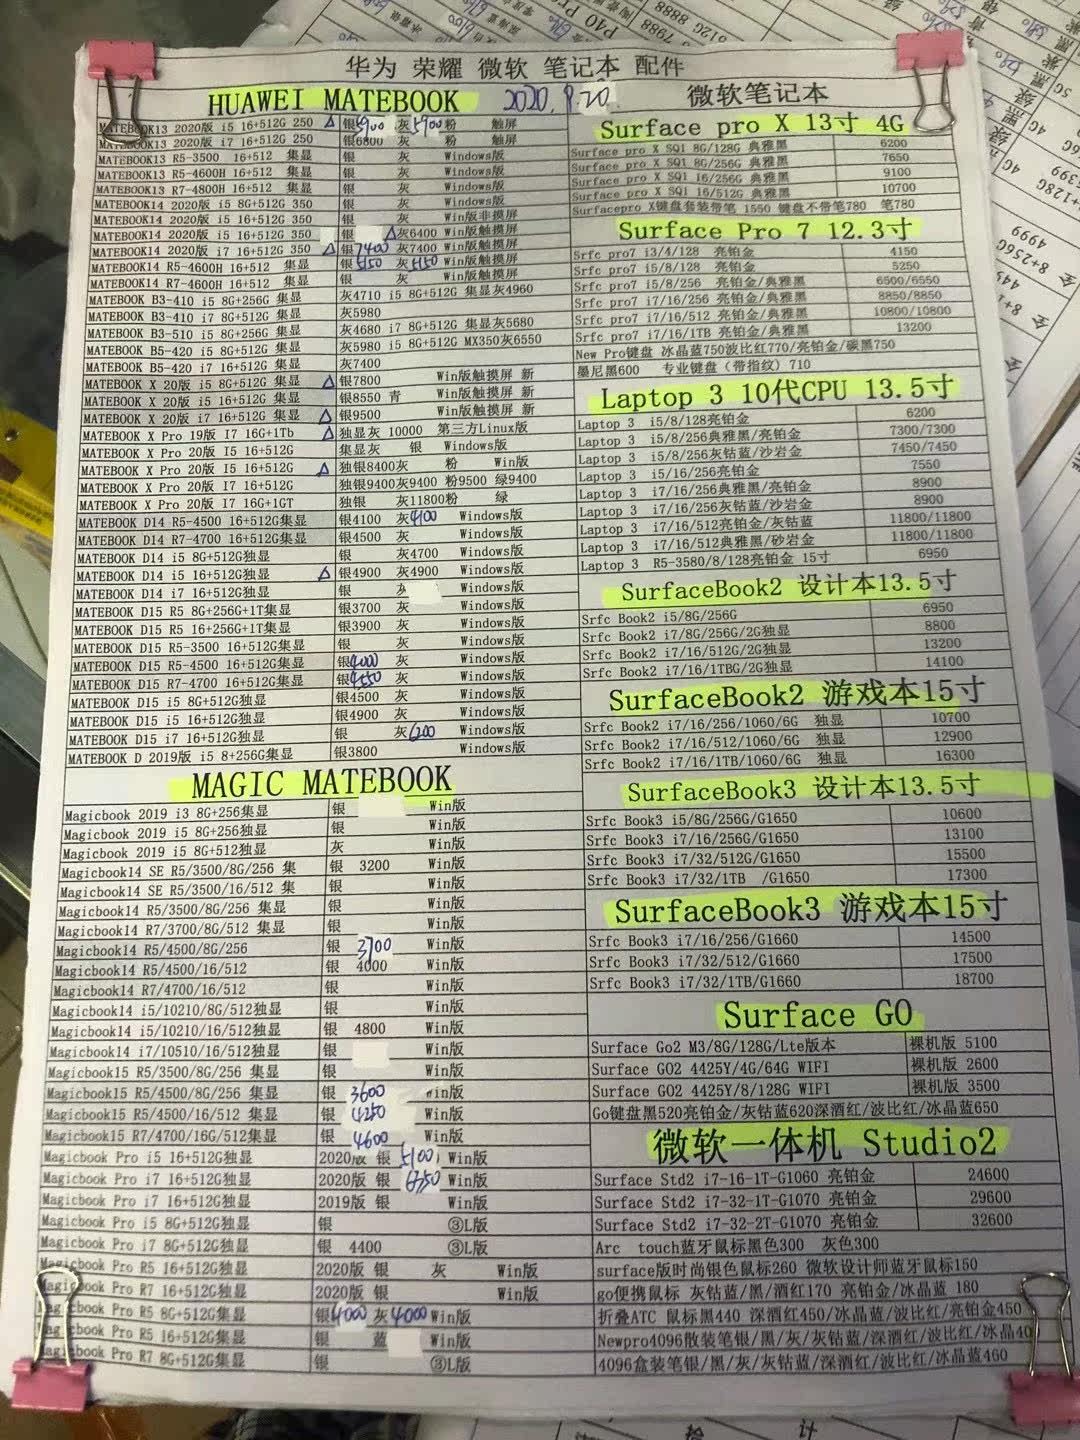 华为 荣耀 微软 笔记本 配件
HUAWEI MATEBOOK 2020.9.20
MATEBOOK13 2020版 i5 16+512G 250 △ 银5900 灰5900 粉 触屏
MATEBOOK13 2020版 i7 16+512G 250 银6800 灰 粉 触屏
MATEBOOK13 R5-3500 16+512 集显 银 灰 Windows版
MATEBOOK13 R5-4600H 16+512 银 灰 Windows版
MATEBOOK13 R7-4800H 16+512 银 灰 Windows版
MATEBOOK14 2020版 i5 8G+512G 350 银 灰 Win版非摸屏
MATEBOOK14 2020版 i5 16+512G 350 银 △灰6400 Win版触摸屏
MATEBOOK14 2020版 i7 16+512G 350 △ 银7400 灰7400 Win版触摸屏
MATEBOOK14 R5-4600H 16+512 集显 银5150 灰5150 Win版触摸屏
MATEBOOK14 R7-4600H 16+512 集显 银 灰 Win版触摸屏
MATEBOOK B3-410 i5 8G+256G 集显 灰4710 i5 8G+512G 集显灰4960
MATEBOOK B3-410 i7 8G+512G 集显 灰5980
MATEBOOK B3-510 i5 8G+256G 集显 灰4680 i7 8G+512G 集显灰5680
MATEBOOK B5-420 i5 8G+512G 集显 灰5980 i5 8G+512G MX350灰6550
MATEBOOK B5-420 i7 16+512G 集显 灰7400
MATEBOOK X 20版 i5 8G+512G 集显 △ 银7800 Win版触摸屏 新
MATEBOOK X 20版 i5 16+512G 集显 银8550 青 Win版触摸屏 新
MATEBOOK X 20版 i7 16+512G 集显 △ 银9500 Win版触摸屏 新
MATEBOOK X Pro 19版 I7 16G+1Tb △ 独显灰 10000 第三方Linux版
MATEBOOK X Pro 20版 I5 16+512G 集显灰 银 Windows版
MATEBOOK X Pro 20版 I5 16+512G △ 独银8400灰 粉 Win版
MATEBOOK X Pro 20版 I7 16+512G 独银9400灰9400 粉9500 绿9400
MATEBOOK X Pro 20版 I7 16G+1GT 独银 灰11800粉 绿
MATEBOOK D14 R5-4500 16+512G集显 银4100 灰4100 Windows版
MATEBOOK D14 R7-4700 16+512G集显 银4500 灰 Windows版
MATEBOOK D14 i5 8G+512G独显 银 灰4700 Windows版
MATEBOOK D14 i5 16+512G独显 △ 银4900 灰4900 Windows版
MATEBOOK D14 i7 16+512G独显 银 Windows版
MATEBOOK D15 R5 8G+256G+1T集显 银3700 灰 Windows版
MATEBOOK D15 R5 16+256G+1T集显 银3900 灰 Windows版
MATEBOOK D15 R5-3500 16+512G集显 银 灰 Windows版
MATEBOOK D15 R5-4500 16+512G集显 银4000 灰 Windows版
MATEBOOK D15 R7-4700 16+512G集显 银4550 灰 Windows版
MATEBOOK D15 i5 8G+512G独显 银4500 灰 Windows版
MATEBOOK D15 i5 16+512G独显 银4900 灰 Windows版
MATEBOOK D15 i7 16+512G独显 银 灰6200 Windows版
MATEBOOK D 2019版 i5 8+256G集显 银3800 Windows版
MAGIC MATEBOOK
Magicbook 2019 i3 8G+256集显 银 Win版
Magicbook 2019 i5 8G+256独显 银 Win版
Magicbook 2019 i5 8G+512独显 灰 Win版
Magicbook14 SE R5/3500/8G/256 集 银 3200 Win版
Magicbook14 SE R5/3500/16/512 集 银 Win版
Magicbook14 R5/3500/8G/256 集显 银 Win版
Magicbook14 R7/3700/8G/512 集显 银 Win版
Magicbook14 R5/4500/8G/256 银 3700 Win版
Magicbook14 R5/4500/16/512 银 4000 Win版
Magicbook14 R7/4700/16/512 银 Win版
Magicbook14 i5/10210/8G/512独显 银 Win版
Magicbook14 i5/10210/16/512独显 银 4800 Win版
Magicbook14 i7/10510/16/512独显 银 Win版
Magicbook15 R5/3500/8G/256 集显 银 Win版
Magicbook15 R5/4500/8G/256 集显 银 3600 Win版
Magicbook15 R5/4500/16/512 集显 银 4250 Win版
Magicbook15 R7/4700/16G/512集显 银 4600 Win版
Magicbook Pro i5 16+512G独显 2020版 银 5100 Win版
Magicbook Pro i7 16+512G独显 2020版 银 6350 Win版
Magicbook Pro i7 16+512G独显 2019版 银 Win版
Magicbook Pro i5 8G+512G独显 银 ③L版
Magicbook Pro i7 8G+512G独显 银 4400 ③L版
Magicbook Pro R5 16+512G集显 2020版 银 灰 Win版
Magicbook Pro R7 16+512G集显 2020版 银 Win版
Magicbook Pro R5 8G+512G集显 银4000 灰4000 Win版
Magicbook Pro R5 16+512G集显 银 蓝 Win版
Magicbook Pro R7 8G+512G集显 银 ③L版
微软笔记本
Surface pro X 13寸 4G
Surface pro X SQ1 8G/128G 典雅黑 6200
Surface pro X SQ1 8G/256G 典雅黑 7650
Surface pro X SQ1 16/256G 典雅黑 9100
Surface pro X SQ1 16/512G 典雅黑 10700
Surfacepro X键盘套装带笔 1550 键盘不带笔780 笔780
Surface Pro 7 12.3寸
Srfc pro7 i3/4/128 亮铂金 4150
Srfc pro7 i5/8/128 亮铂金 5250
Srfc pro7 i5/8/256 亮铂金/典雅黑 6500/6550
Srfc pro7 i7/16/256 亮铂金/典雅黑 8850/8850
Srfc pro7 i7/16/512 亮铂金/典雅黑 10800/10800
Srfc pro7 i7/16/1TB 亮铂金/典雅黑 13200
New Pro键盘 冰晶蓝750波比红770/亮铂金/碳黑750
墨尼黑600 专业键盘（带指纹）710
Laptop 3 10代CPU 13.5寸
Laptop 3 i5/8/128亮铂金 6200
Laptop 3 i5/8/256典雅黑/亮铂金 7300/7300
Laptop 3 i5/8/256灰钴蓝/沙岩金 7450/7450
Laptop 3 i5/16/256亮铂金 7550
Laptop 3 i7/16/256典雅黑/亮铂金 8900
Laptop 3 i7/16/256灰钴蓝/沙岩金 8900
Laptop 3 i7/16/512亮铂金/灰钴蓝 11800/11800
Laptop 3 i7/16/512典雅黑/砂岩金 11800/11800
Laptop 3 R5-3580/8/128亮铂金 15寸 6950
SurfaceBook2 设计本13.5寸
Srfc Book2 i5/8G/256G 6950
Srfc Book2 i7/8G/256G/2G独显 8800
Srfc Book2 i7/16/512G/2G独显 13200
Srfc Book2 i7/16/1TBG/2G独显 14100
SurfaceBook2 游戏本15寸
Srfc Book2 i7/16/256/1060/6G 独显 10700
Srfc Book2 i7/16/512/1060/6G 独显 12900
Srfc Book2 i7/16/1TB/1060/6G 独显 16300
SurfaceBook3 设计本13.5寸
Srfc Book3 i5/8G/256G/G1650 10600
Srfc Book3 i7/16/256G/G1650 13100
Srfc Book3 i7/32/512G/G1650 15500
Srfc Book3 i7/32/1TB /G1650 17300
SurfaceBook3 游戏本15寸
Srfc Book3 i7/16/256/G1660 14500
Srfc Book3 i7/32/512/G1660 17500
Srfc Book3 i7/32/1TB/G1660 18700
Surface GO
Surface Go2 M3/8G/128G/Lte版本 裸机版 5100
Surface GO2 4425Y/4G/64G WIFI 裸机版 2600
Surface GO2 4425Y/8/128G WIFI 裸机版 3500
Go键盘黑520亮铂金/灰钴蓝620深酒红/波比红/冰晶蓝650
微软一体机 Studio2
Surface Std2 i7-16-1T-G1060 亮铂金 24600
Surface Std2 i7-32-1T-G1070 亮铂金 29600
Surface Std2 i7-32-2T-G1070 亮铂金 32600
Arc touch蓝牙鼠标黑色300 灰色300
surface版时尚银色鼠标260 微软设计师蓝牙鼠标150
go便携鼠标 灰钴蓝/黑/酒红170 亮铂金/冰晶蓝 180
折叠ATC 鼠标黑440 深酒红450/冰晶蓝/波比红/亮铂金450
Newpro4096散装笔银/黑/灰/灰钴蓝/深酒红/波比红/冰晶40
4096盒装笔银/黑/灰/灰钴蓝/深酒红/波比红/冰晶蓝460